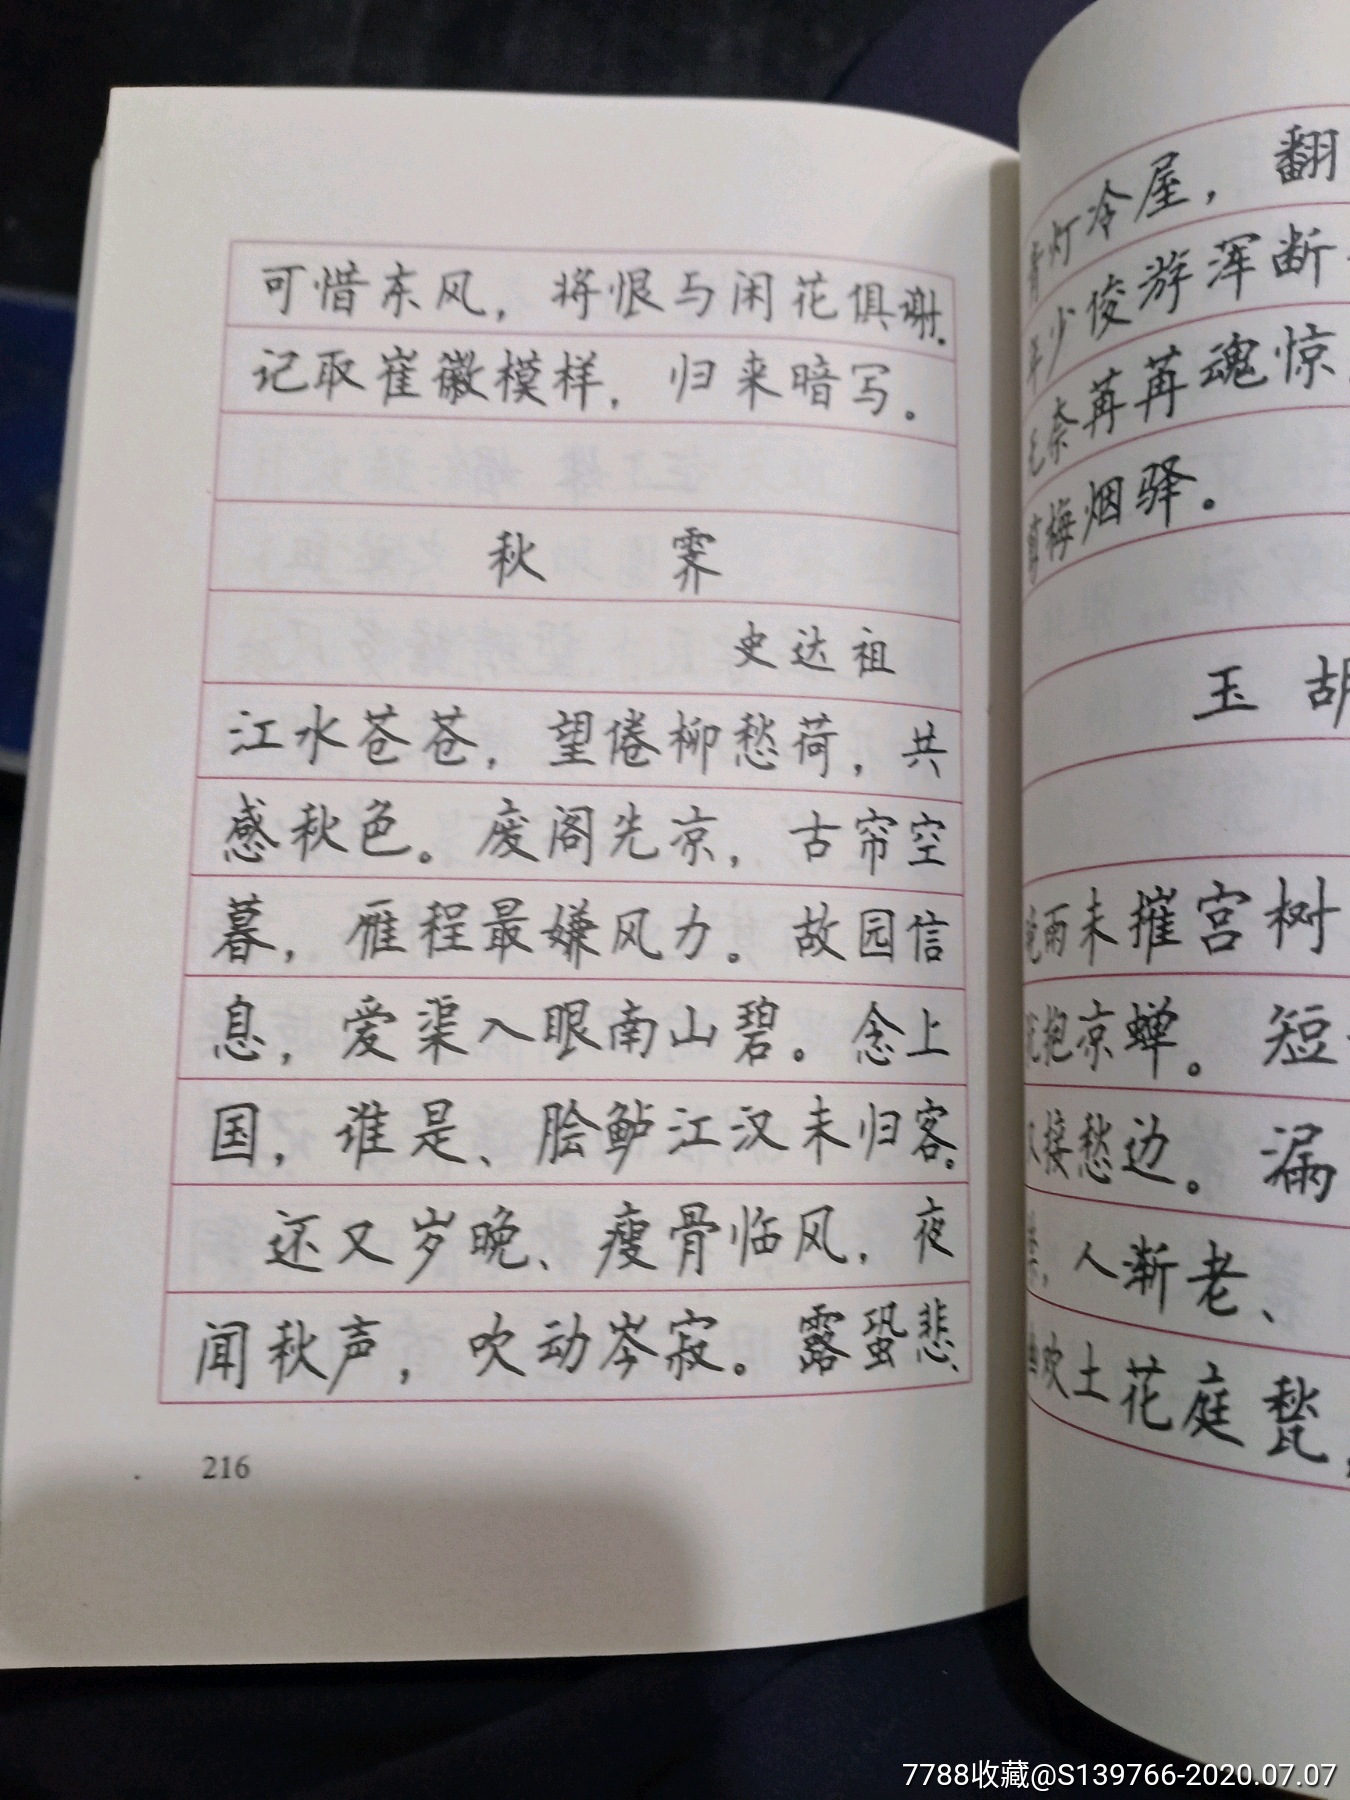 可惜东风，将恨与闲花俱谢.
记取崔徽模样，归来暗写。
秋 霁
史达祖
江水苍苍，望倦柳愁荷，共
感秋色。废阁先凉，古帘空
暮，雁程最嫌风力。故园信
息，爱渠入眼南山碧。念上
国，谁是、脍鲈江汉未归客。
还又岁晚、瘦骨临风，夜
闻秋声，吹动岑寂。露蛩悲、
216
青灯冷屋，翻
年少俊游浑断
无奈苒苒魂惊
剪梅烟驿。
玉 胡
晚雨未摧宫树
犹抱凉蝉。短
又接愁边。漏
人渐老、
吹土花庭甃，
7788收藏@S139766-2020.07.07